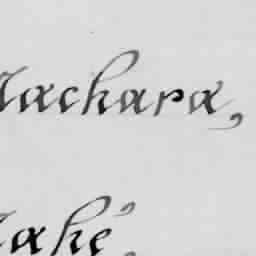 achara,
ahe,